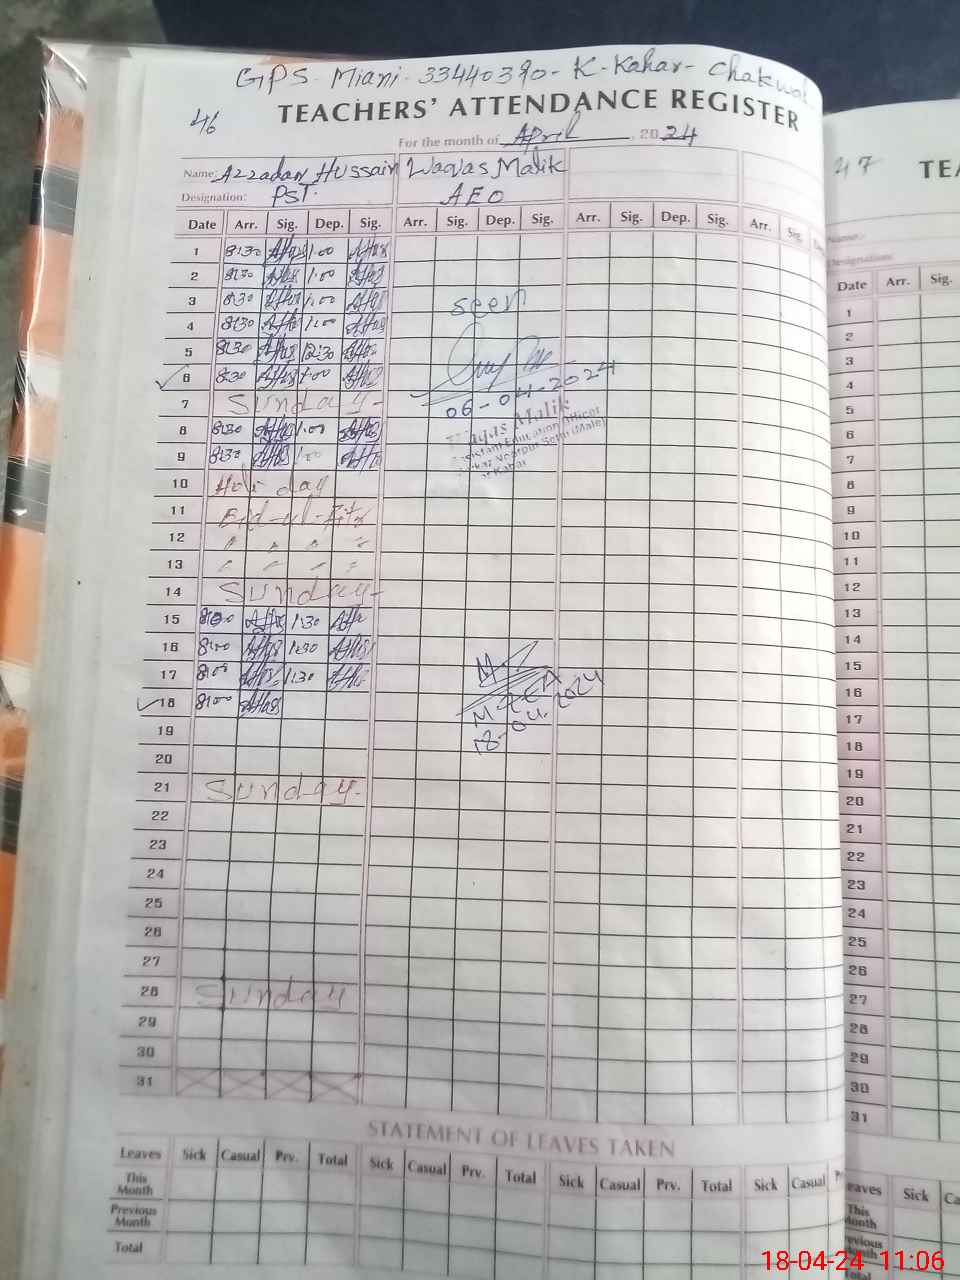 GPS. Miani. 33440390- K-Kahar- Chakwal
46
TEACHERS' ATTENDANCE REGISTER
For the month of April, 2024
Name: Azzadar Hussain Waqas Malik
Designation: PST. AEO
Date Arr. Sig. Dep. Sig. Arr. Sig. Dep. Sig. Arr. Sig. Dep. Sig. Arr. Sig.
1 8:30 1.00
2 8:30 1.00
3 8:30 1.00 seen
4 8:30 1:00
5 8:30 12:30
6 8:30 1.00
06-04-2024
7 Sunday-
8 8:30 1.00
9 8:30 1.00
Waqas Malik
Assistant Education Officer
Markaz Noorpur Sethi (Male)
Kahar
10 Holi day
11 Eid-ul-Fitr
12 " " " "
13 " " " "
14 Sunday-
15 8:00 1:30
16 8:00 1:30
17 8:00 1:30
18 8:00
MEA
18-04.2024
19
20
21 Sunday.
22
23
24
25
26
27
28 Sunday
29
30
31
STATEMENT OF LEAVES TAKEN
Leaves Sick Casual Prv. Total Sick Casual Prv. Total Sick Casual Prv. Total Sick Casual
This Month
Previous Month
Total
47
TEA
Name:
Designation:
Date Arr. Sig.
1
2
3
4
5
6
7
8
9
10
11
12
13
14
15
16
17
18
19
20
21
22
23
24
25
26
27
28
29
30
31
Leaves Sick
This Month
Previous Month
Total
18-04-24 11:06